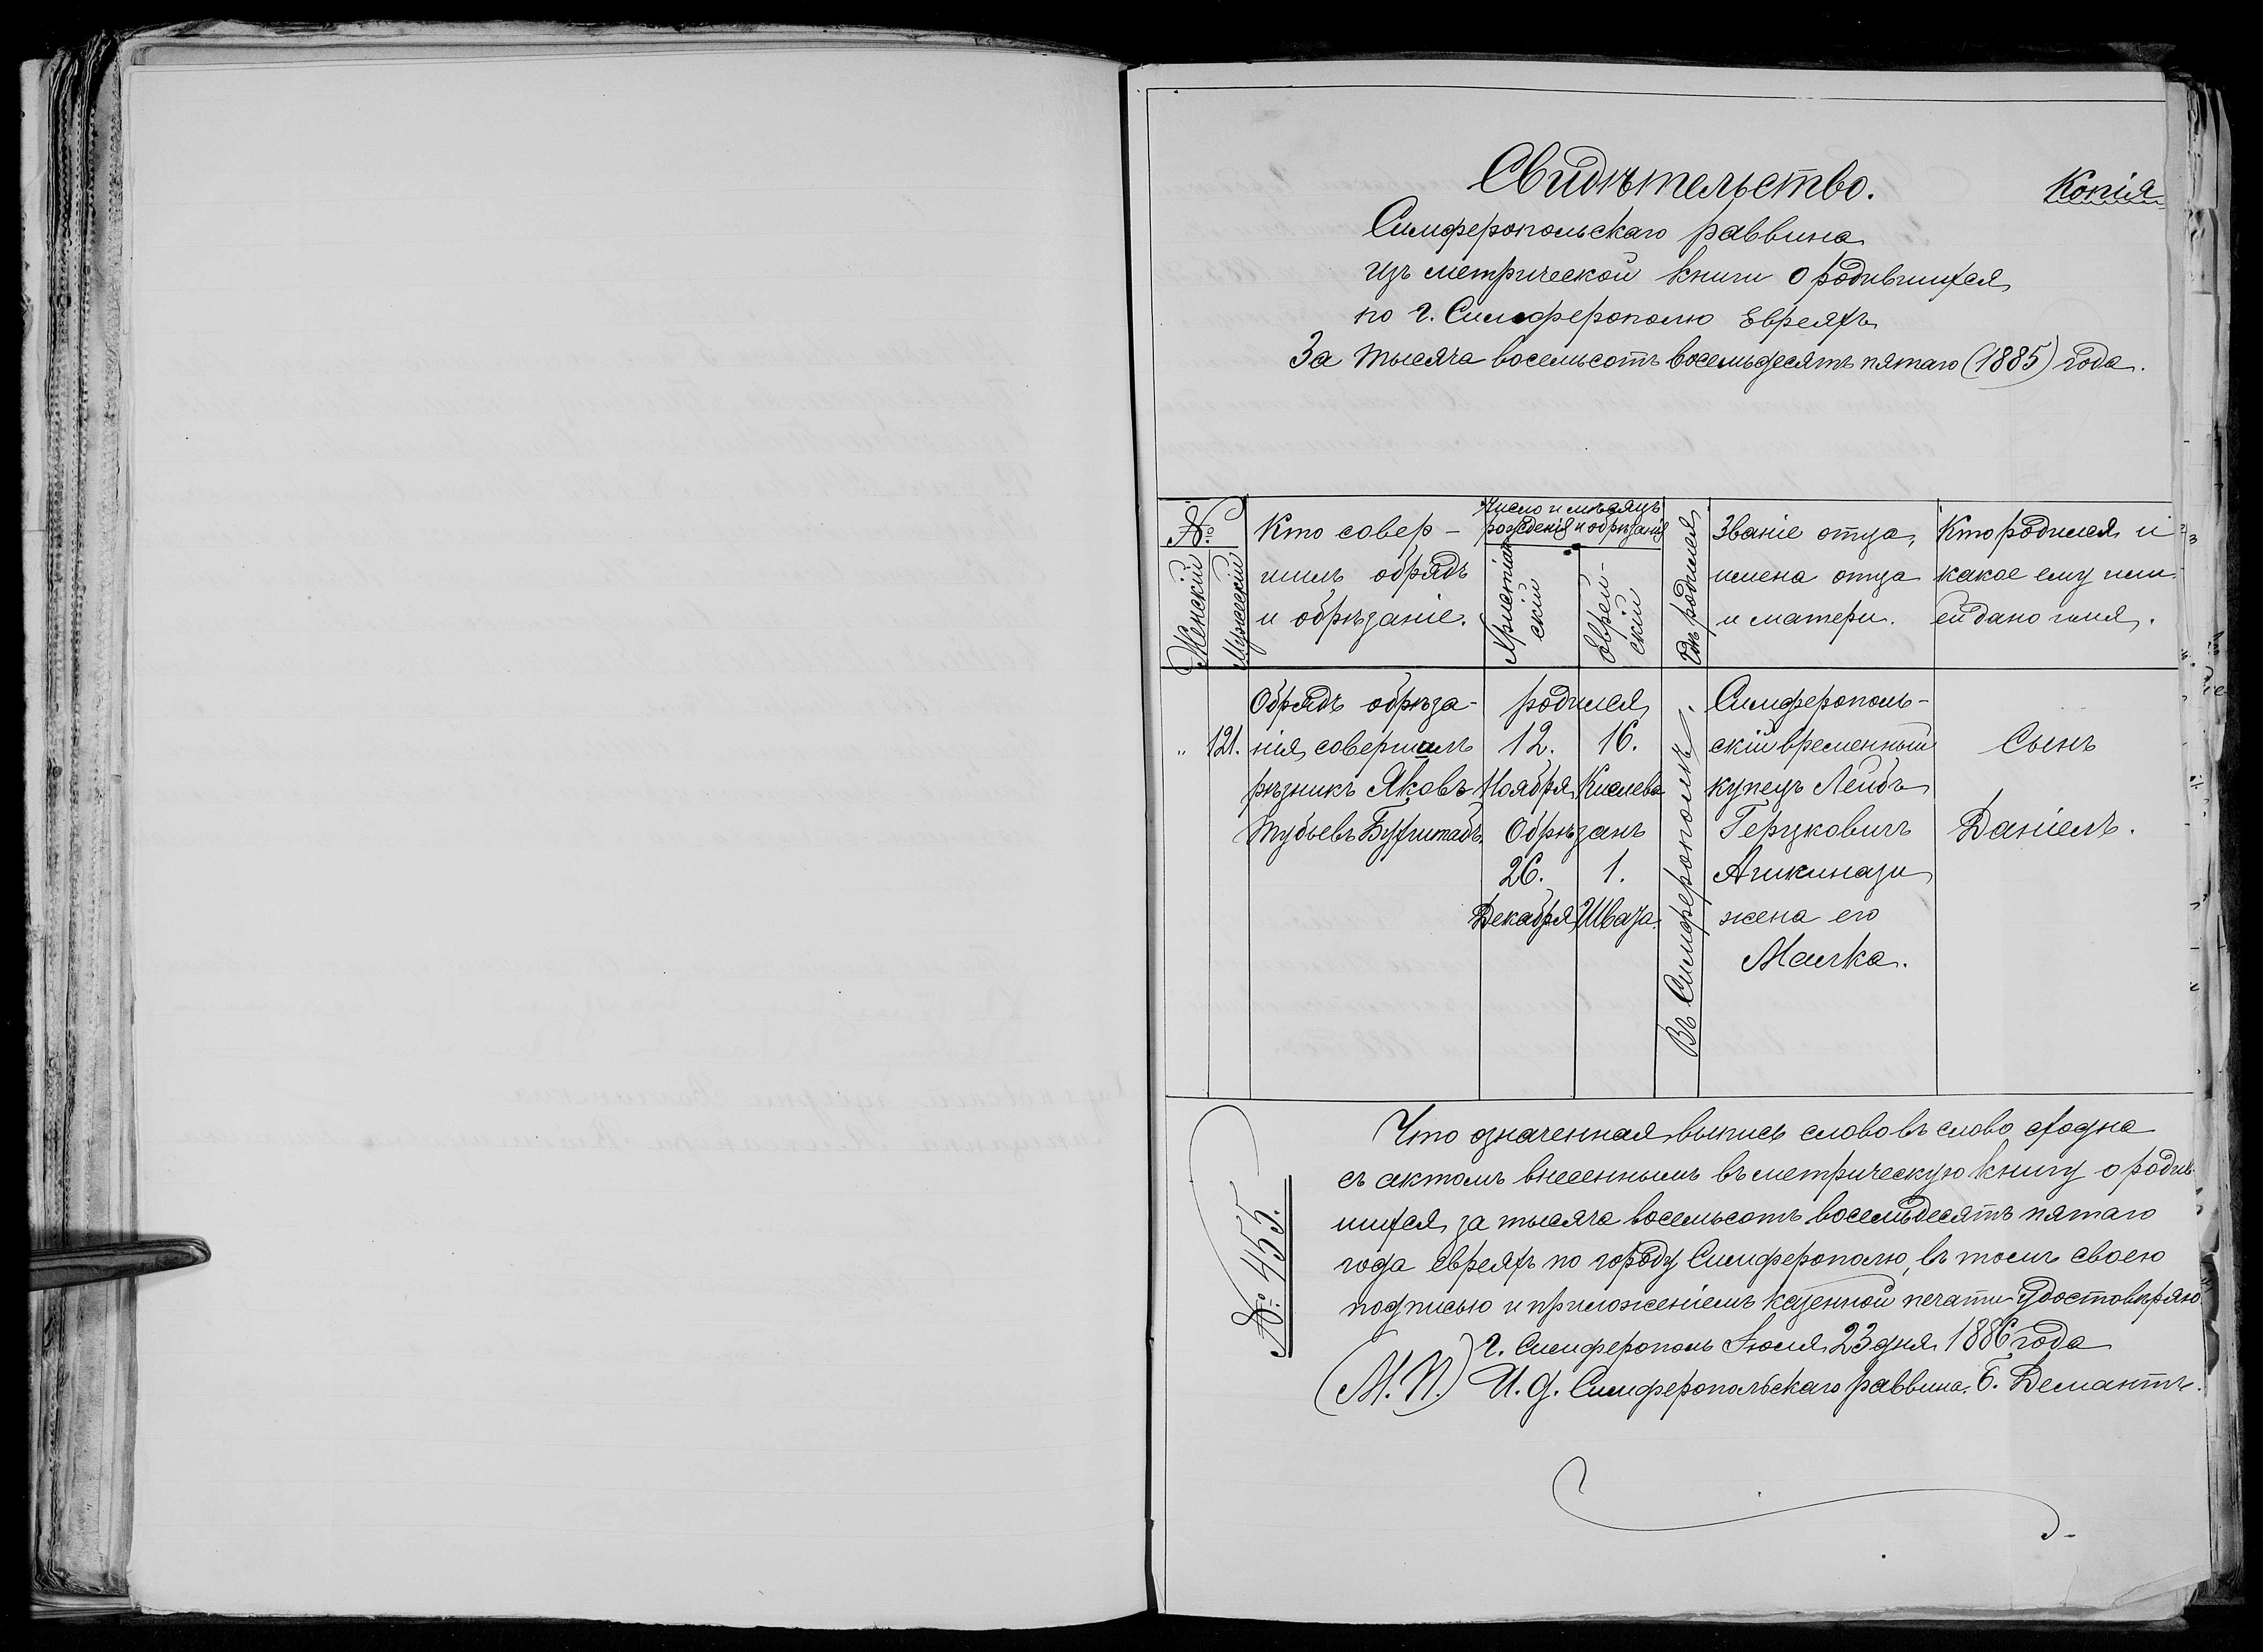 Свидѣтельство.
Копія
Симферопольскаго раввина
изъ метрической книги о родившихся
по г. Симферополю Евреяхъ
За тысяча восемьсотъ восемьдесятъ пятаго (1885) года.
№
Женскій
Мужескій
Кто совер-
шилъ обрядъ
и обрѣзаніе.
Число и мѣсяцъ
рожденія и обрѣзанія
Христіан
скій
Еврей-
скій
Гдѣ родился
Званіе отца,
имена отца
и матери.
Кто родился и
какое ему или
ей дано имя.
"
121.
Обрядъ обрѣза-
нія совершалъ
рѣзникъ Яковъ
Тубьевъ
родился
12. 16.
Ноября Кислева
Обрѣзанъ
26. 1.
Декабря Швата.
Въ Симферополѣ.
Симферополь-
скій временный
купецъ Лейбъ
Герцковичъ
Ашкинази
жена его
Малка.
Сынъ
Даніелъ.
Что означенная выпись слово въ слово сходна
съ актомъ внесеннымъ въ метрическую книгу о родив-
шихся за тысяча восемьсотъ восемьдесятъ пятаго
года евреяхъ по городу Симферополю, въ томъ своею
подписью и приложеніемъ казенной печати удостовѣряю.
г. Симферополь Іюля 23 дня 1886 года
(М.П.) И. д. Симферопольскаго раввина Б. Демантъ.
№ 455.